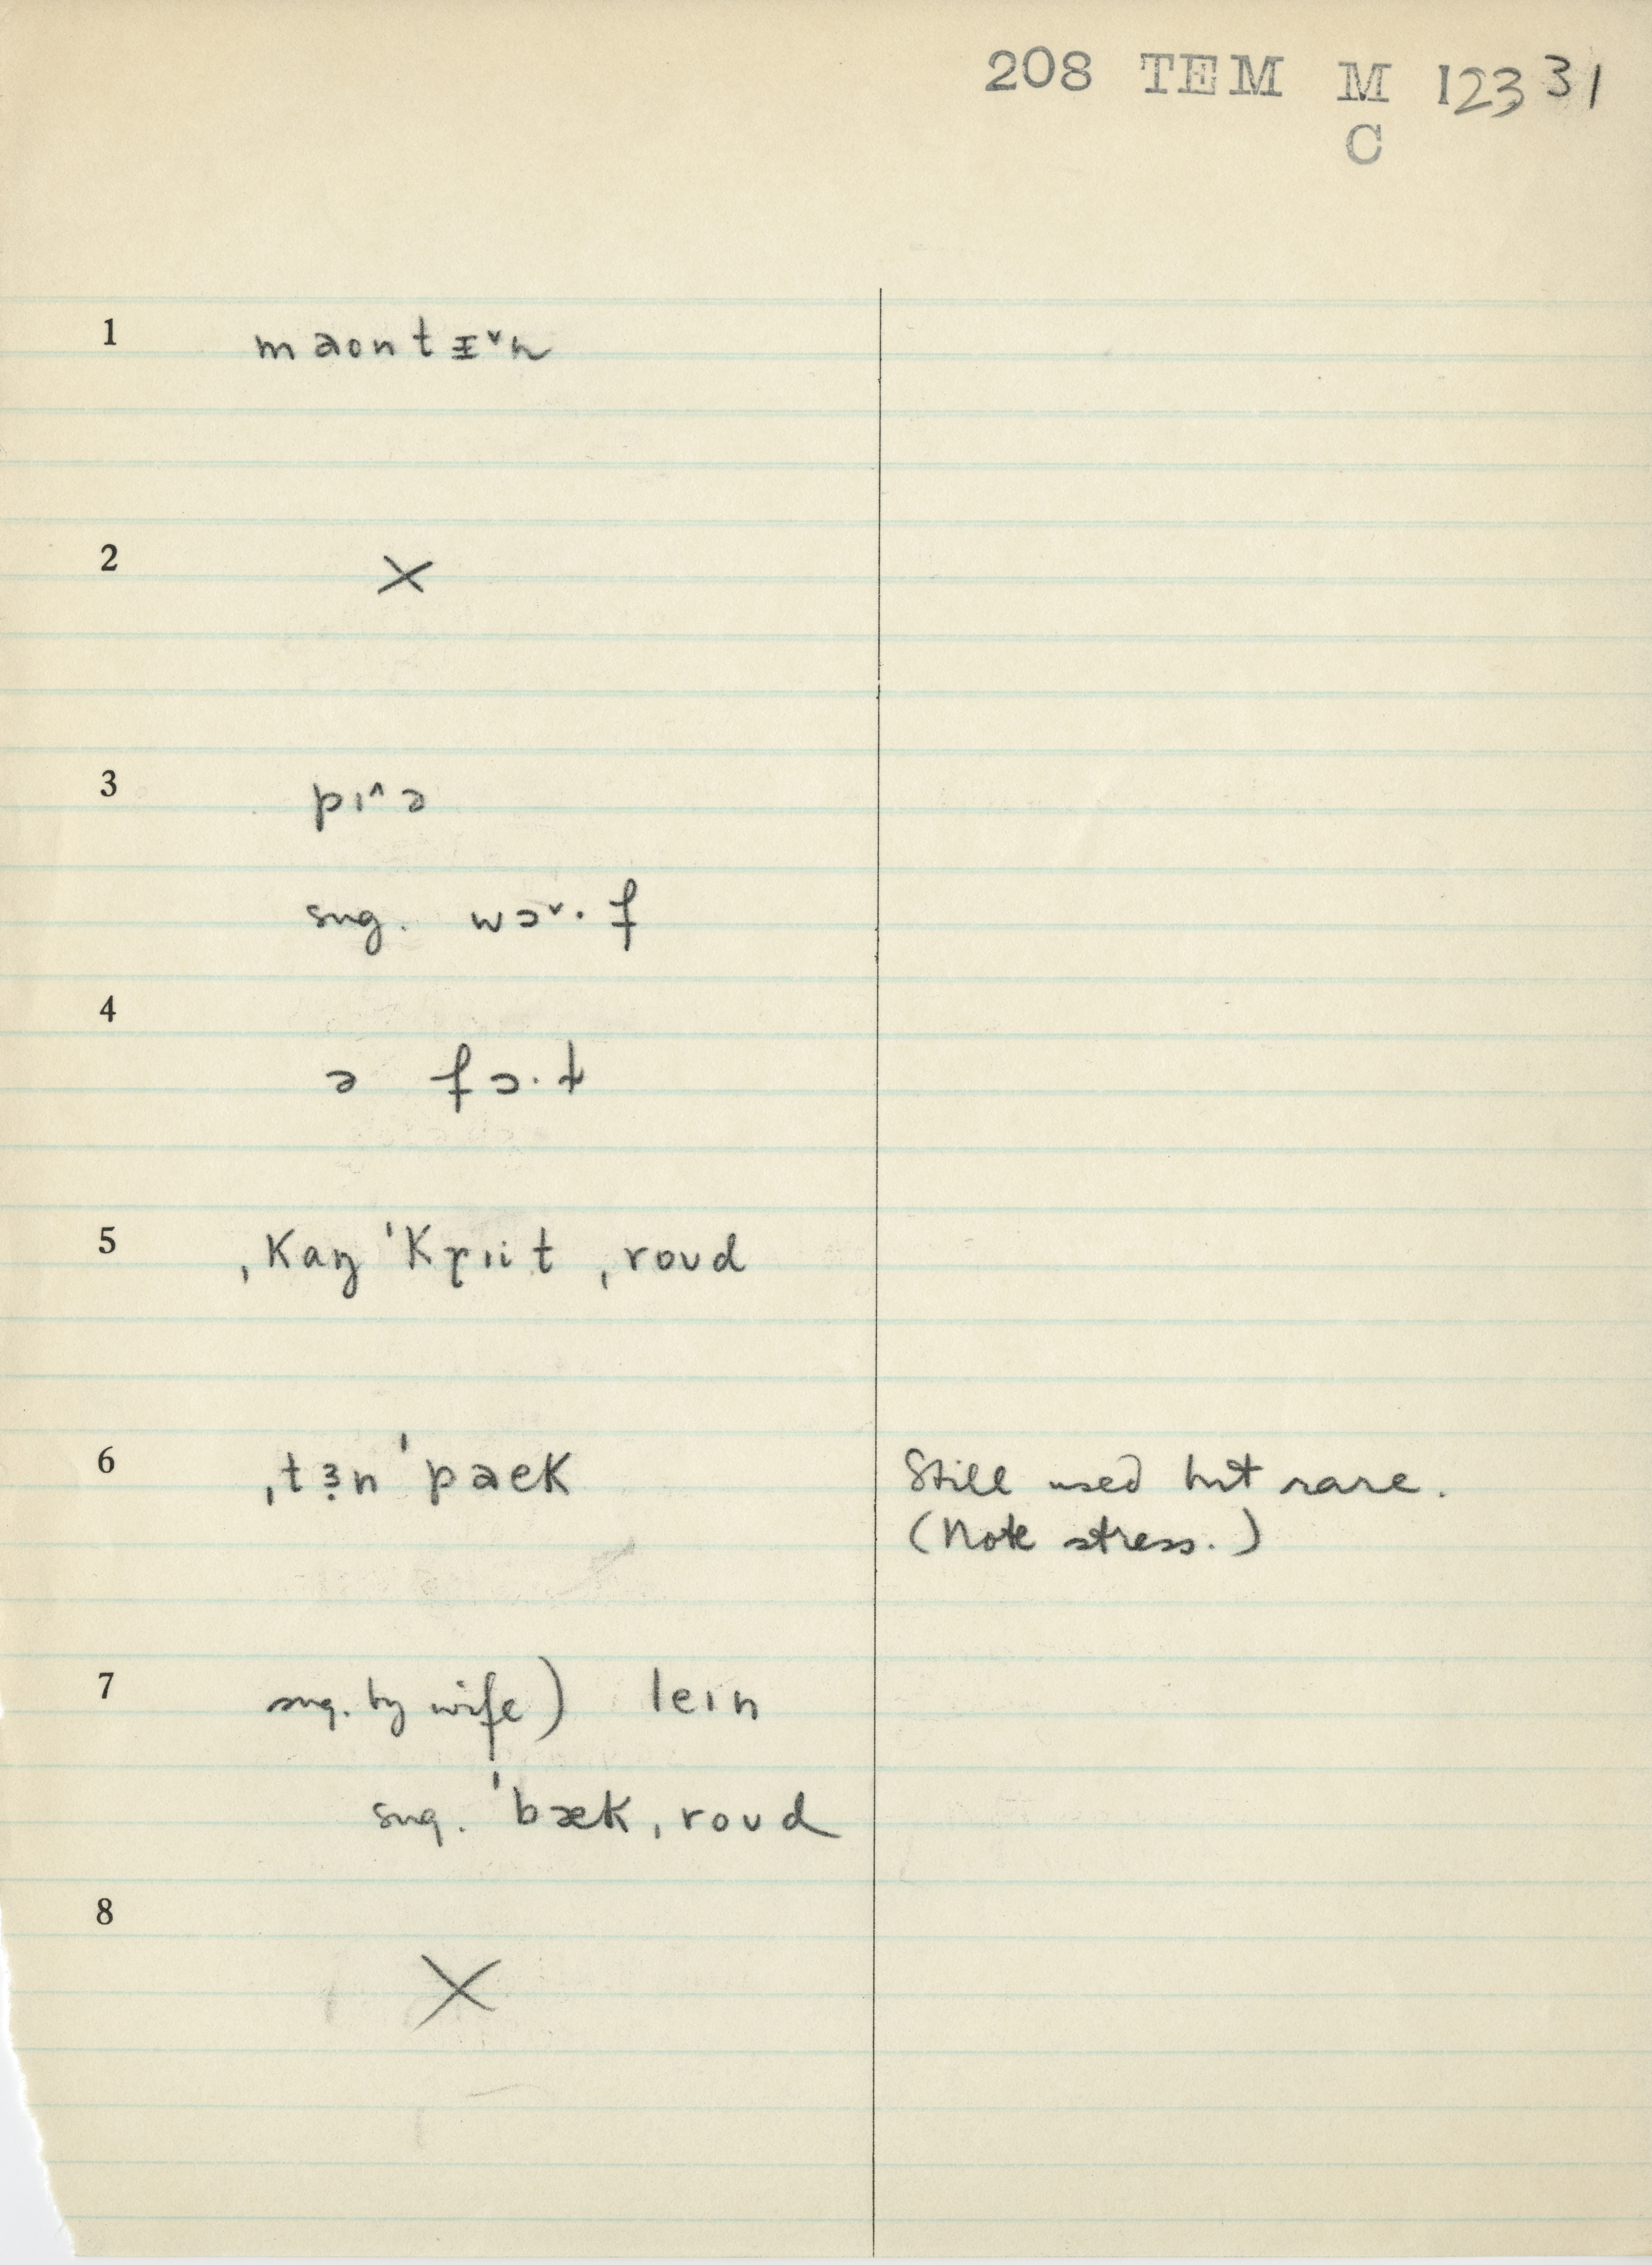 208 TEM M 12331
C
1 maontᵻ˅n
2 X
3 pɪ^ə
sug. wɔ˅· f
4 ə fɔ·ɫ
5 ˌkaŋ ˈkrɪit ˌroud
6 ˌtɜ̣n ˈpaek Still used but rare.
(Note stress.)
7 sug. by wife) leɪn
sug. ˈbæk ˌroud
8 X